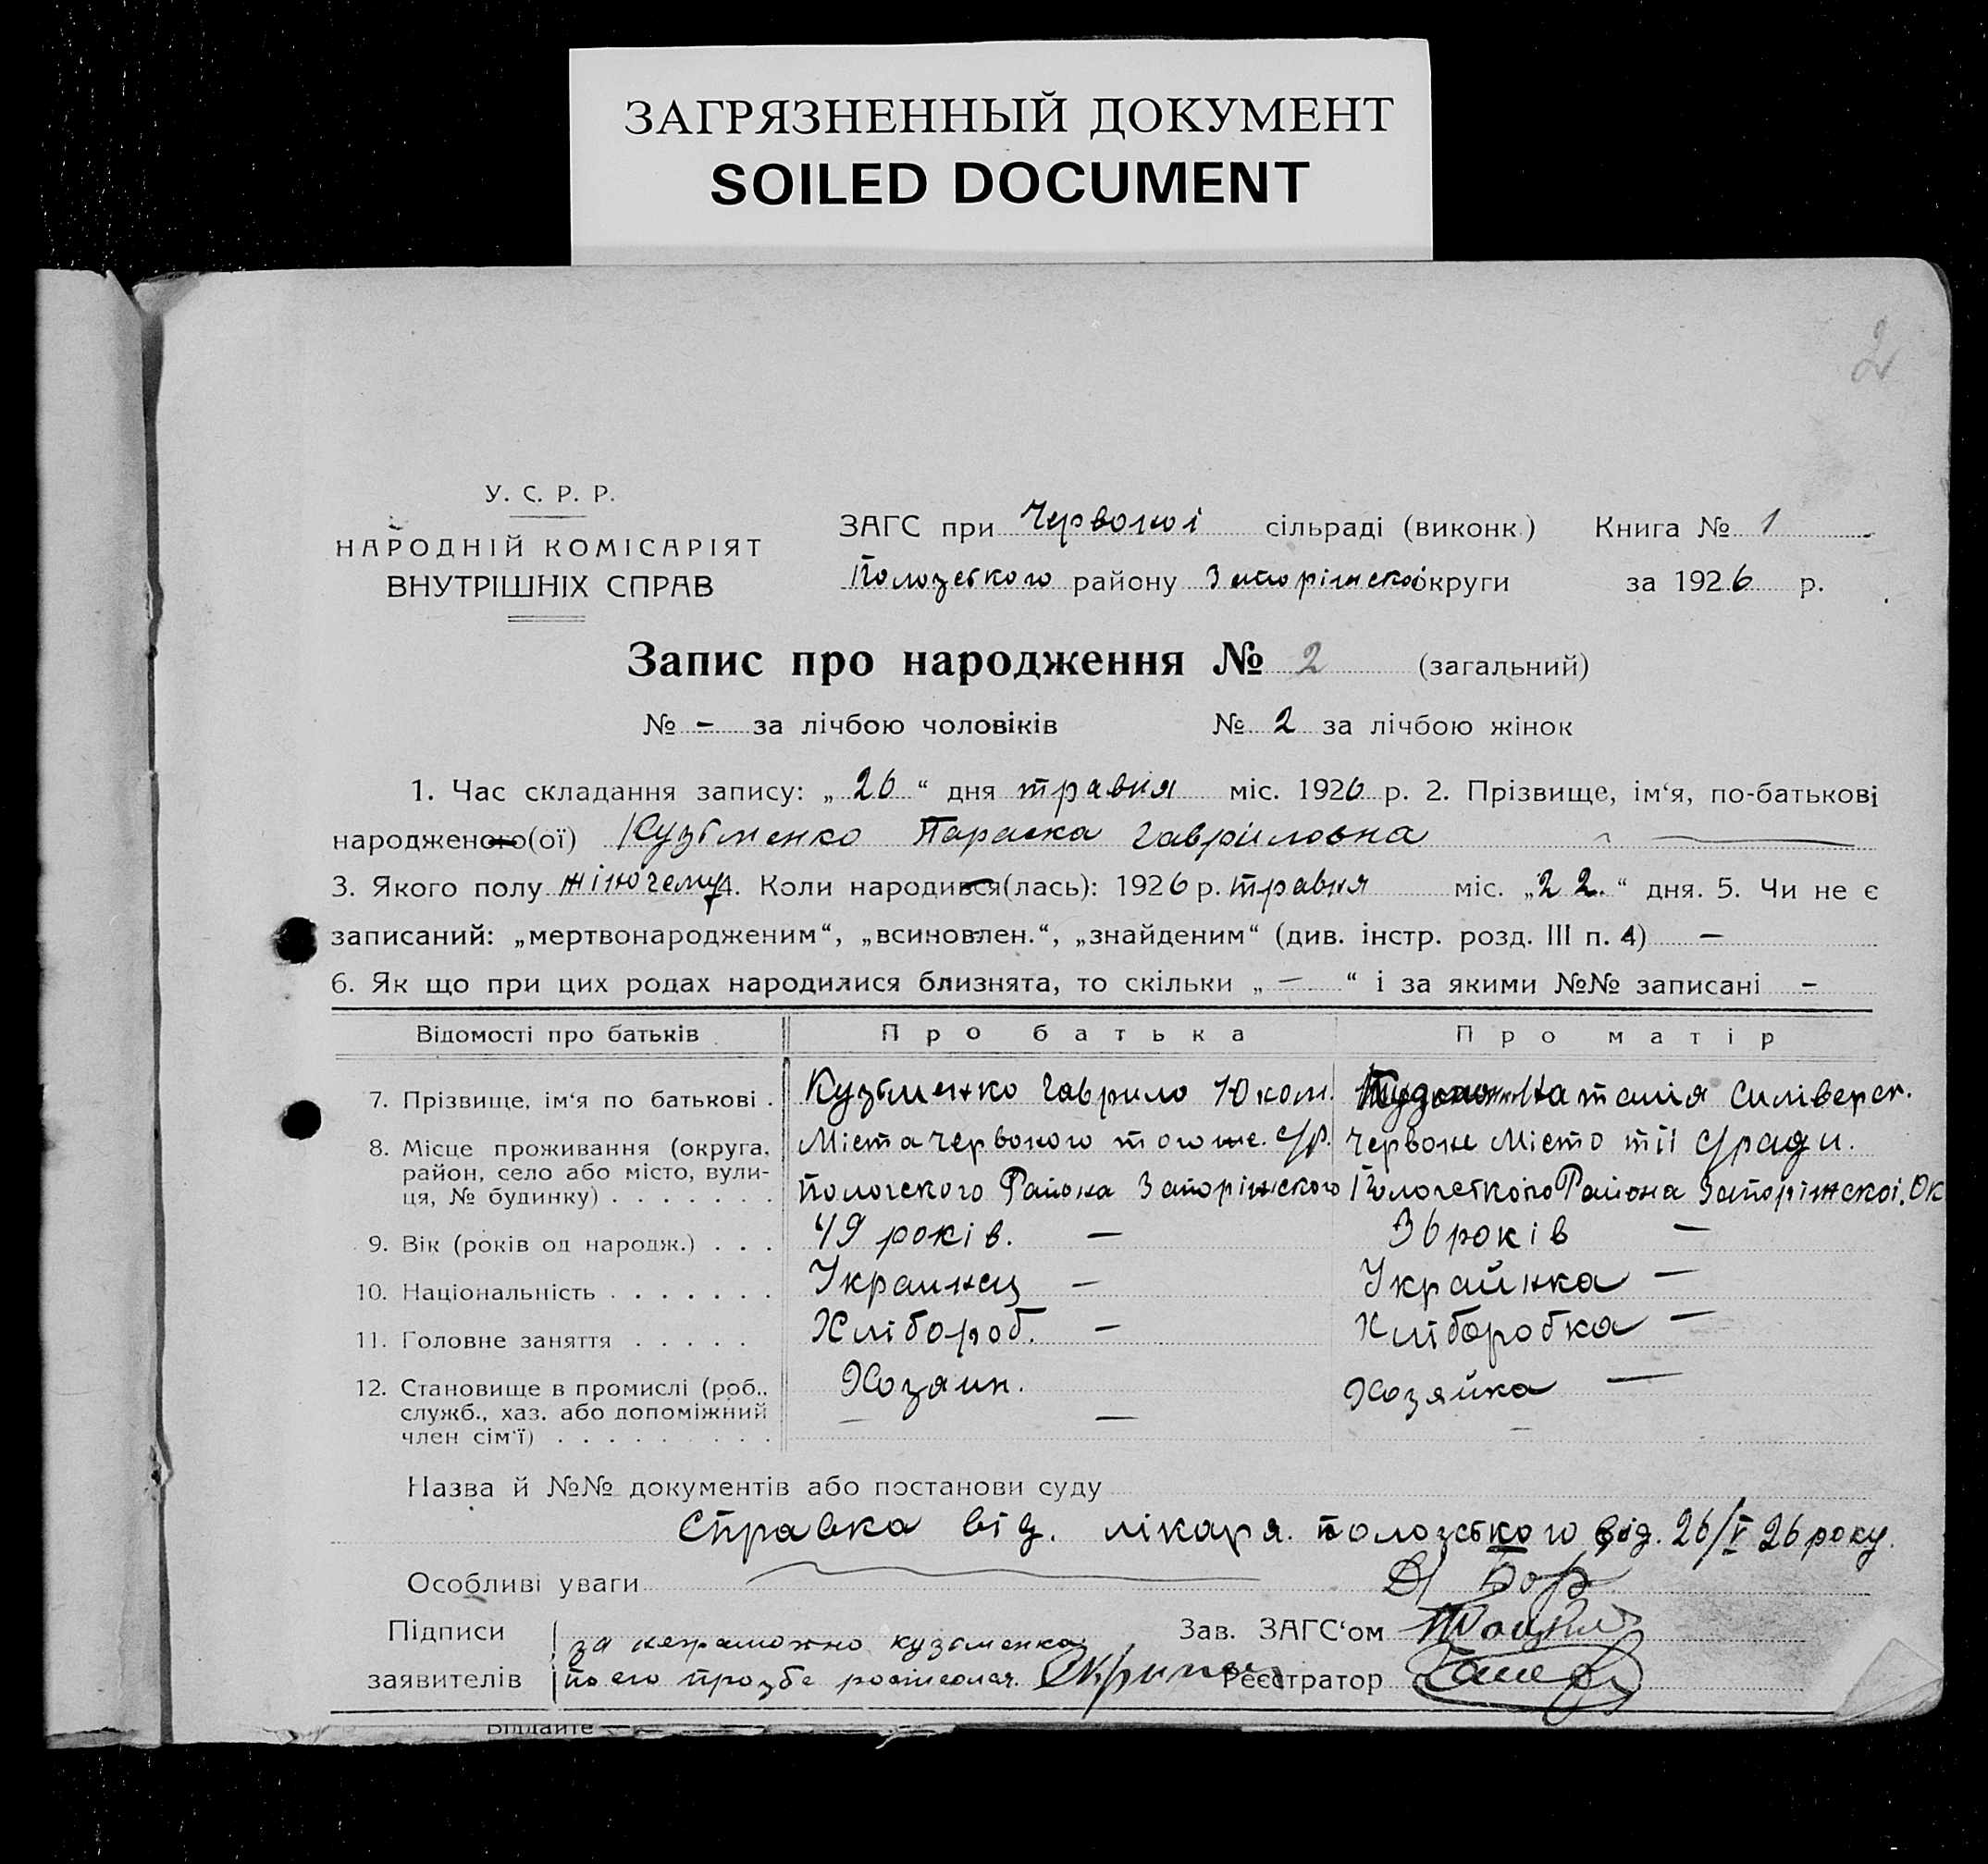 ЗАГРЯЗНЕННЫЙ ДОКУМЕНТ
SOILED DOCUMENT
2
У. С. Р. Р.
НАРОДНІЙ КОМІСАРІЯТ
ВНУТРІШНІХ СПРАВ
ЗАГС при Червоної сільраді (виконк.) Книга № 1
Пологського району Запоріжскої округи за 1926 р.
Запис про народження № 2 (загальний)
№ - за лічбою чоловіків № 2 за лічбою жінок
1. Час складання запису: „26“ дня травня міс. 1926 р. 2. Прізвище, ім‘я, по-батькові
народженого(ої) Кузьменко Параска Гавриловна
3. Якого полу жіночему 4. Коли народився(лась): 1926 р. травня міс. „22.“ дня. 5. Чи не є
записаний: „мертвонародженим“, „всиновлен.“, „знайденим“ (див. інстр. розд. III п. 4) —
6. Як що при цих родах народилися близнята, то скільки „—“ і за якими №№ записані -
Відомості про батьків Про батька Про матір
7. Прізвище, ім‘я по батькові . Кузьменко Гаврило Юхом. Наталія Силіверст.
8. Місце проживання (округа, район, село або місто, вулиця, № будинку) . . . . . . . Міста Червоного тогоже. с/р. Червоне Місто тії с/ради.
Пологского Района Запоріжского Района Запоріжскоі. Ок
9. Вік (років од народж.) . . . 49 років. — 36 років —
10. Національність . . . . . . . Украинец — Украйнка —
11. Головне заняття . . . . . Хлібороб. — Хліборобка —
12. Становище в промислі (роб., служб., хаз. або допоміжний член сім‘ї) . . . . . . . . . Хозяин. — Хозяйка —
Назва й №№ документів або постанови суду
Справка від. лікаря. від. 26/V 26 року.
Особливі уваги
Підписи за неграмотно кузьменка Зав. ЗАГС‘ом
заявителів по его прозбе Реєстратор